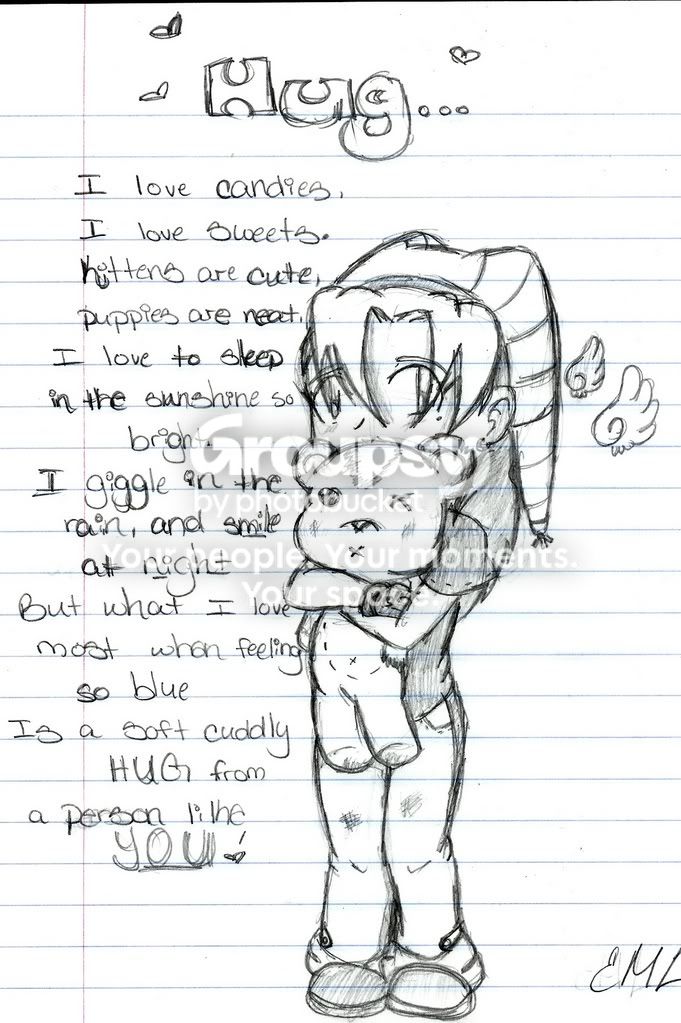 Hug...
I love candies,
I love sweets.
kittens are cute,
puppies are neat.
I love to sleep
in the sunshine so
bright.
I giggle in the
rain, and smile
at night
But what I love
most when feeling
so blue
Is a soft cuddly
HUG from
a person like
YOU!
Groupsy
by photobucket
Your people. Your moments.
Your space.
EML